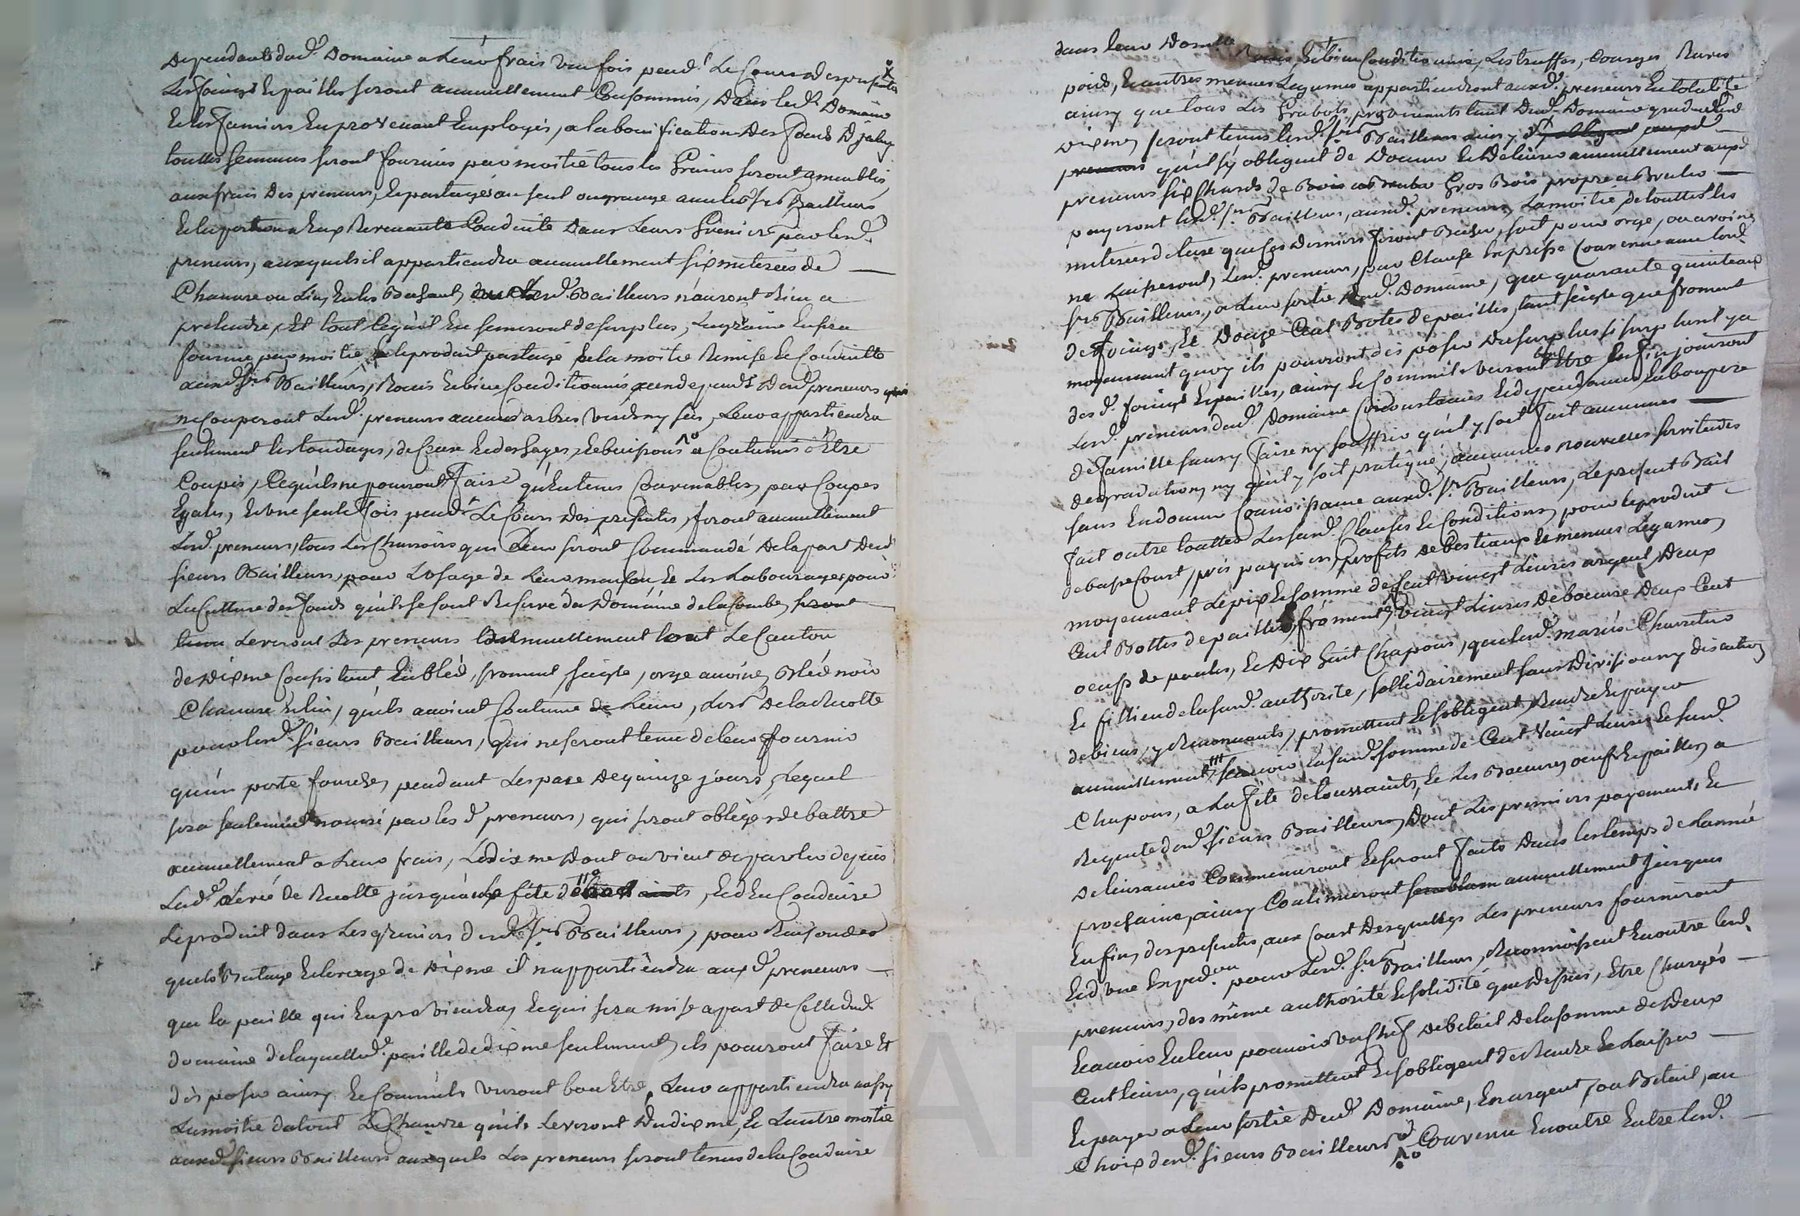 Dependants dud.t Domaine a Leurs frais une fois pend.t Le Cours des presentes
Les foings Et pailles seront annuellement Consommés, Dans led.t Domaine
Et les fumiers En provenant Employés, a la bonification Des fonds D
touttes semances seront fournies par moitié tous les Grains seront ameublés
aux frais Des preneurs, Et partagés au seul ou grange avec les srs Bailleurs
Et la portion a Eux Revenante Conduite Dans Leurs Greniers par lesd.
preneurs, auxquels il appartiendra annuellement six mitterées de
Chanvre ou Lin, En les faisant, lesd. Bailleurs n'auront Rien a
pretendre, Et tout ce qu'il En semeront de surplus, La graine En sera
fournie par moitié Et le produit partagé Et la moitié Remise Et Conduitte
auxd. srs Bailleurs, Rouis Et bien Conditionnés aux depends Desd. preneurs
ne Couperont Lesd. preneurs aucuns arbres vierds ny secs, Leur appartiendra
seulement les tondages, de Et des hayes, Et buissons a Coutumés d'Etre
Coupés, Ce qu'ils ne pourront faire qu'En tems Convenables, par Coupes
Egales, Et une seule fois pend.t Le Cours Des presentes, feront annuellement
Lesd. preneurs, tous Les Charrois qui Leur seront Commandé De la part Desd.
sieurs Bailleurs, pour L'usage de Leur maison, Et Les Labourages pour
La Culture des fonds qu'ils se sont Reservé du Domaine de la Combe,
Leveront Les preneurs annuellement tout Le Canton
de dixme Consistant En bled, froment, seigle, orge avoine, Bled noir
Chanvre Et lin, qu'ils avoient Coutume de Lever, Lors De la Recolte
pour lesd. sieurs Bailleurs, qui ne seront tenu de leur fournir
qu'un porte fourche, pendant Lespace De quinze jours, Lequel
sera seulement nourri par les d. preneurs, qui seront obligés de battre
annuellement a Leurs frais, Ledixme Dont on vient de parler depuis
Lad. Levée de Recolte jusqu'a La fête de , Et d'En Conduire
Le produit dans Les greniers desd. srs Bailleurs, pour Raison des
quels Battage Et levage de Dixme il n'appartiendra auxd. preneurs
que la paille qui En proviendra, Et qui sera mise apart de Celle dud.
domaine de laquelle d. paille de dixme seulement, ils pourront faire Et
disposer ainsy Et Comm'ils verront bon Etre, Leur appartiendra aussy
La moitié de tout Le Chanvre qu'ils Leveront Dud. dixme, Et L'autre moitié
auxd. sieurs Bailleurs auxquels Les preneurs seront tenus de la Conduire
dans leur Domicile Rouis Et bien Conditionnés, Les truffes, Courges, Raves
pois, Et autres menues Legumes appartiendront auxd. preneurs En totalité
ainsy que tous Les Grabots, provenants tant Dud. Domaine que dud.
dixme, seront tenus lesd. srs Bailleurs ainsy
qu'ils s'y obligent de Donner Et Delivrer annuellement auxd.
preneurs six Chards de Gros Bois propre a Bruler
payeront lesd. srs Bailleurs, auxd. preneurs, La moitié de touttes les
mitterées de terre que Ces derniers feront Biner, soit pour orge, ou avoine
ne Laisseront, Lesd. preneurs, par Clause Expresse Convenue avec lesd.
srs Bailleurs, a Leur sortie Dud. Domaine, que quarante quintaux
de foings, Et Douze Cent Bottes de pailles, tant seigle que froment
moyennant quoy ils pourront disposer Du surplus si surplus il y a
des d. foings Et pailles, ainsy Et Comm'ils verront Bon Etre Enfin jouiront
Lesd. preneurs dud. Domaine Circonstances Et dependances En bon pere
de famille sans y faire ny souffrir qu'il y soit fait aucunes
degradations, ny qu'il y soit pratiqué, aucunes nouvelles servitudes
sans En donner Connoissance auxd. srs Bailleurs, Le present Bail
fait outre touttes Lessusd. Clauses Et Conditions, pour Le produit
de basse Court, prés pasquiers, profits de Bestiaux Et menues Legumes
moyennant Le prix Et somme de Cent vingt Livres argent, Deux
Cent Bottes de pailles froment, vingt Livres De beurre Deux Cent
oeufs de poules, Et Dix huit Chapons, que lesd. mariés Charreton
Et fillien de la susd. authorité, sollidairement sans Division ny discution
de biens, y Renonceants, promettent Et s'obligent, Rendre Et payer
annuellement scavoir La susd. somme de Cent Vingt Livres Et susd.
Chapons, a La fête de toussaints, Et Les Beurre, oeufs Et pailles, a
Requete desd. sieurs Bailleurs, Dont Les premiers payements, Et
delivrances Commenceront Et se feront faits Dans les temps de L'année
prochaine, ainsy Continueront annuellement jusques
En fin, des presentes, aux Cout Desquelles Les preneurs fourniront
Et d'une Exped.on pour Lesd. srs Bailleurs, Reconnoissent En outre lesd.
preneurs, des même authorité Et solidité que Dessus, Etre Chargés
Et avoir En Leur pouvoir Un Chef De betail De la somme de Deux
Cent Livres, qu'ils promettent Et s'obligent de Rendre Et Laisser
Et payer a Leur sortie Dud. Domaine, En argent, ou Betail, au
Choix desd. sieurs Bailleurs Convenu En outre Entre lesd.